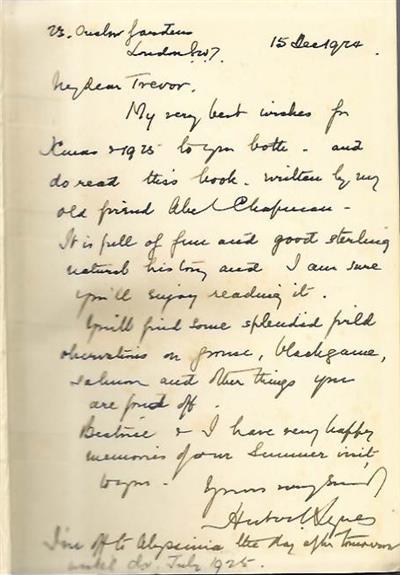 23. Onslow Gardens
London S.W.7.
15 Dec 1924.
My dear Trevor.
My very best wishes for
Xmas & 1925 to you both - and
do read this book - written by my
old friend Abel Chapman -
It is full of fun and good sterling
natural history and I am sure
you'll enjoy reading it.
You'll find some splendid field
observations on grouse, blackgame,
salmon and other things you
are fond off.
Beatrice & I have very happy
memories of our Summer visit
to you. Yours very
Hubert Lynes
I'm off to Abyssinia the day after tomorrow
until July 1925.